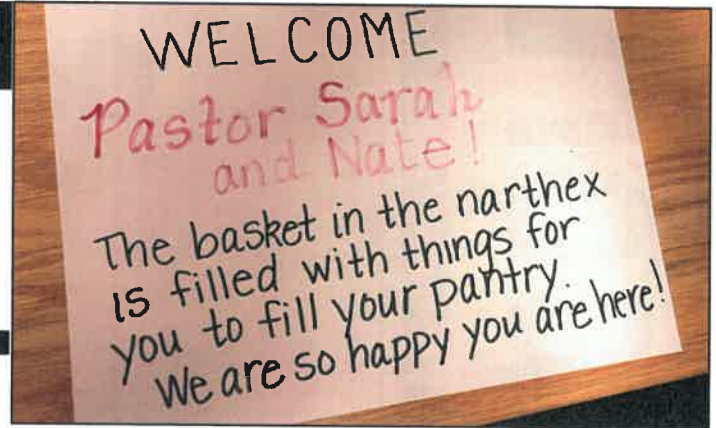 WELCOME
Pastor Sarah
and Nate!
The basket in the narthex
is filled with things for
you to fill your pantry.
We are so happy you are here!